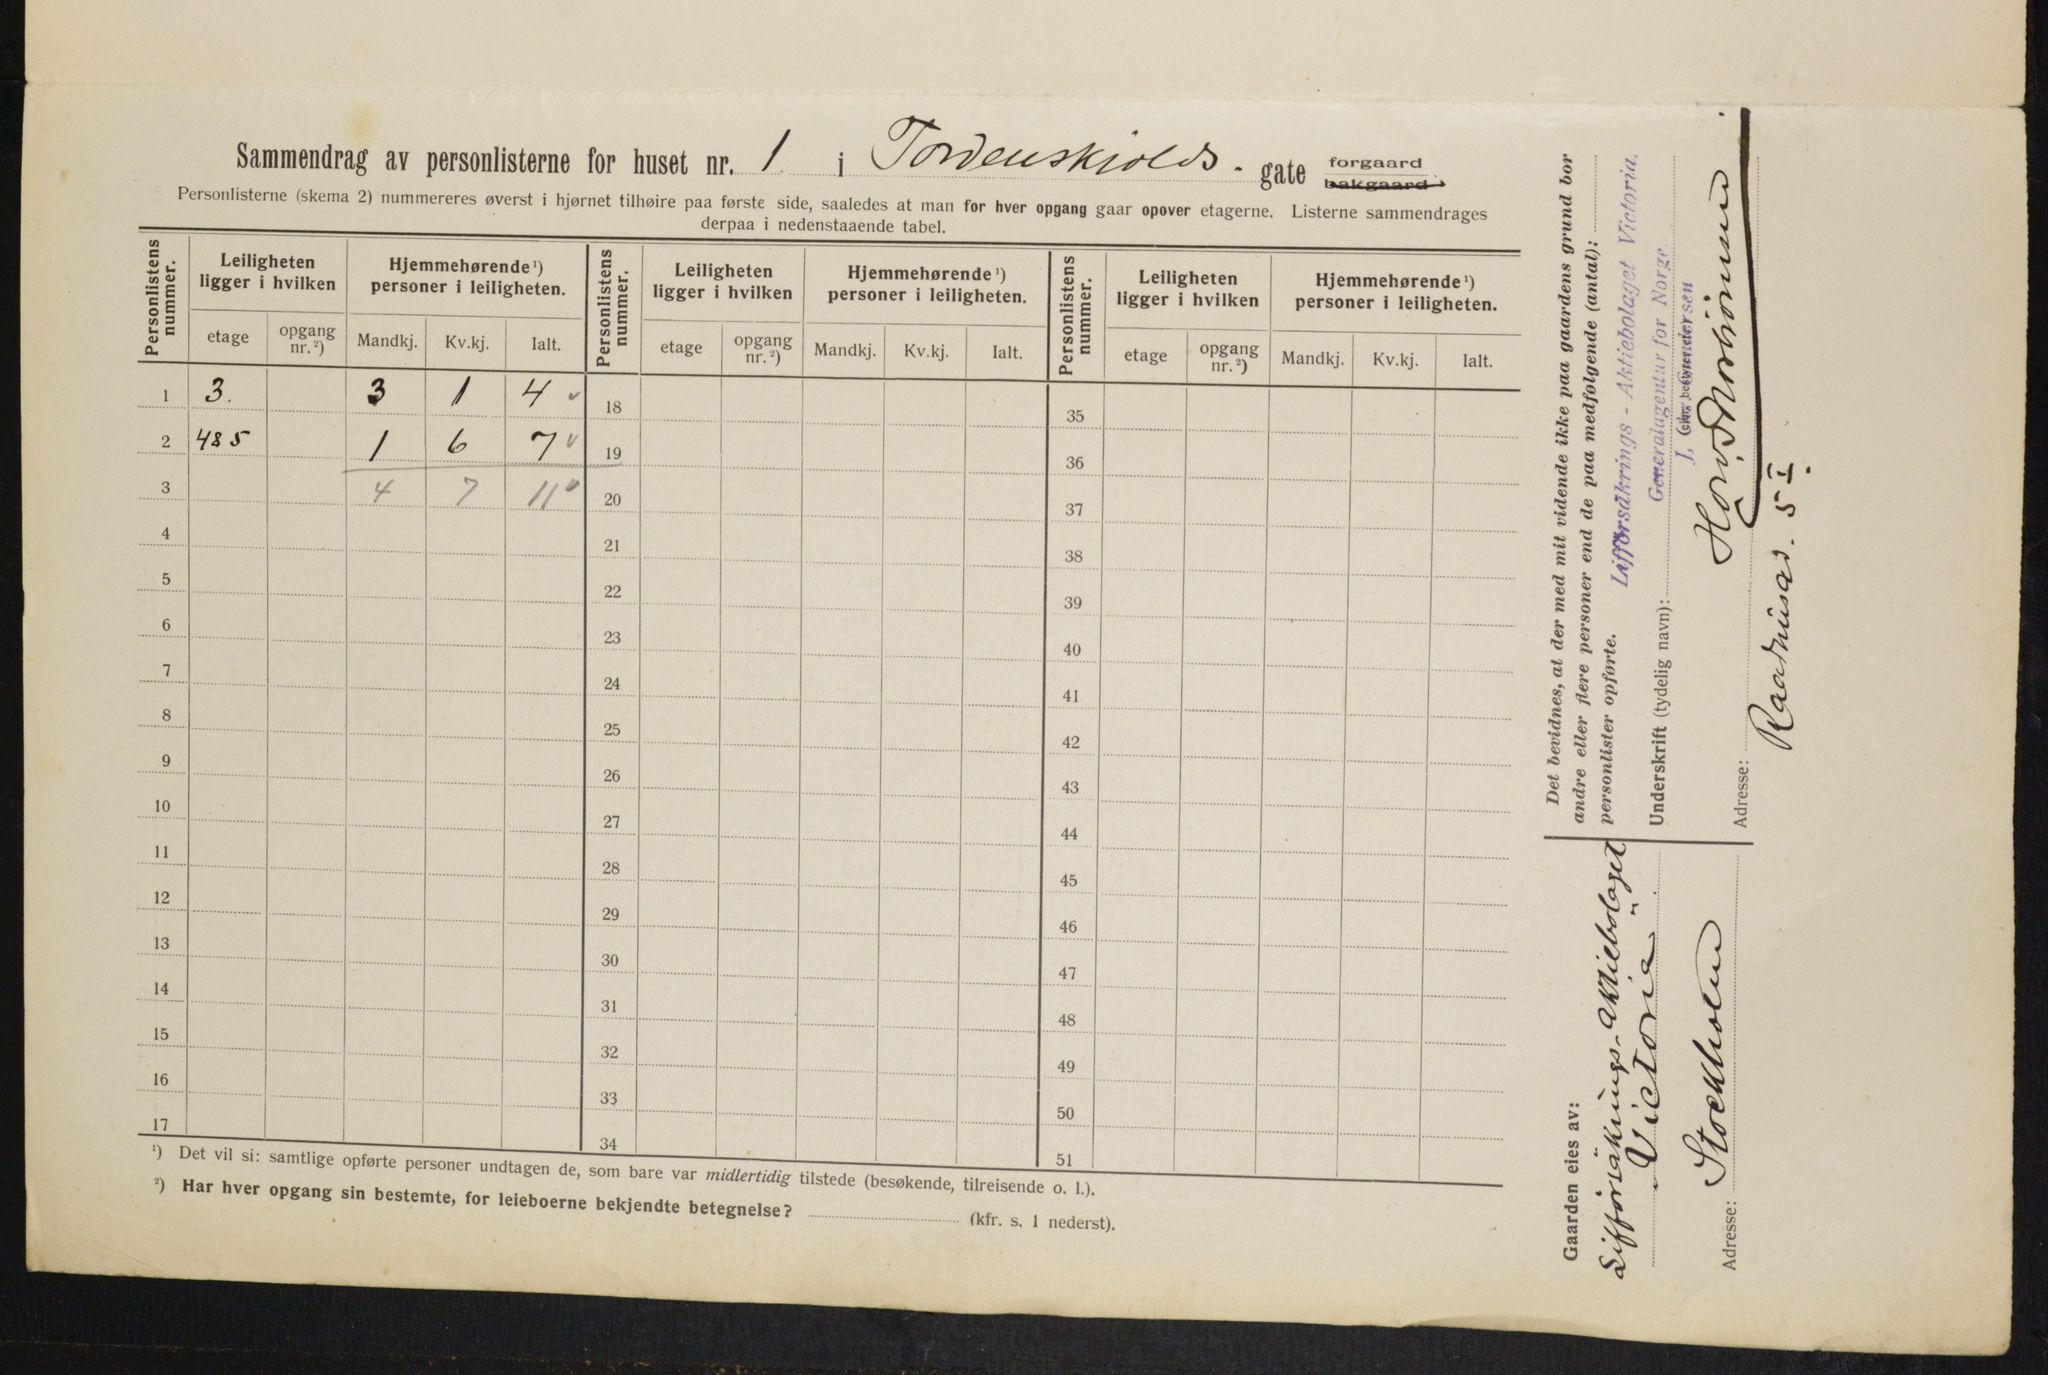 Sammendrag av personlisterne for huset nr. 1 i Tordenskjolds gate forgaard
bakgaard
Personlisterne (skema 2) nummereres øverst i hjørnet tilhøire paa første side, saaledes at man for hver opgang gaar opover etagerne. Listerne sammendrages
derpaa i nedenstaaende tabel.
Personlistens nummer. Leiligheten ligger i hvilken Hjemmehørende ¹) personer i leiligheten. Personlistens nummer. Leiligheten ligger i hvilken Hjemmehørende ¹) personer i leiligheten. Personlistens nummer. Leiligheten ligger i hvilken Hjemmehørende ¹) personer i leiligheten.
etage opgang nr. ²) Mandkj. Kv.kj. Ialt. etage opgang nr. ²) Mandkj. Kv.kj. Ialt. etage opgang nr. ²) Mandkj. Kv.kj. Ialt.
1 3. 3 1 4 18 35
2 4&5 1 6 7 19 36
3 4 7 11 20 37
4 21 38
5 22 39
6 23 40
7 24 41
8 25 42
9 26 43
10 27 44
11 28 45
12 29 46
13 30 47
14 31 48
15 32 49
16 33 50
17 34 51
¹) Det vil si: samtlige opførte personer undtagen de, som bare var midlertidig tilstede (besøkende, tilreisende o. l.).
²) Har hver opgang sin bestemte, for leieboerne bekjendte betegnelse? (kfr. s. 1 nederst).
Det bevidnes, at der med mit vidende ikke paa gaardens grund bor
andre eller flere personer end de paa medfølgende (antal):
personlister opførte.
Lifförsäkrings-Aktiebolaget Victoria.
Generalagentur for Norge
Underskrift (tydelig navn):
Adresse: Raadhusgd. 5 I.
Gaarden eies av:
Lifförsäkrings-Aktiebolaget
Victoria
Adresse: Stockholm